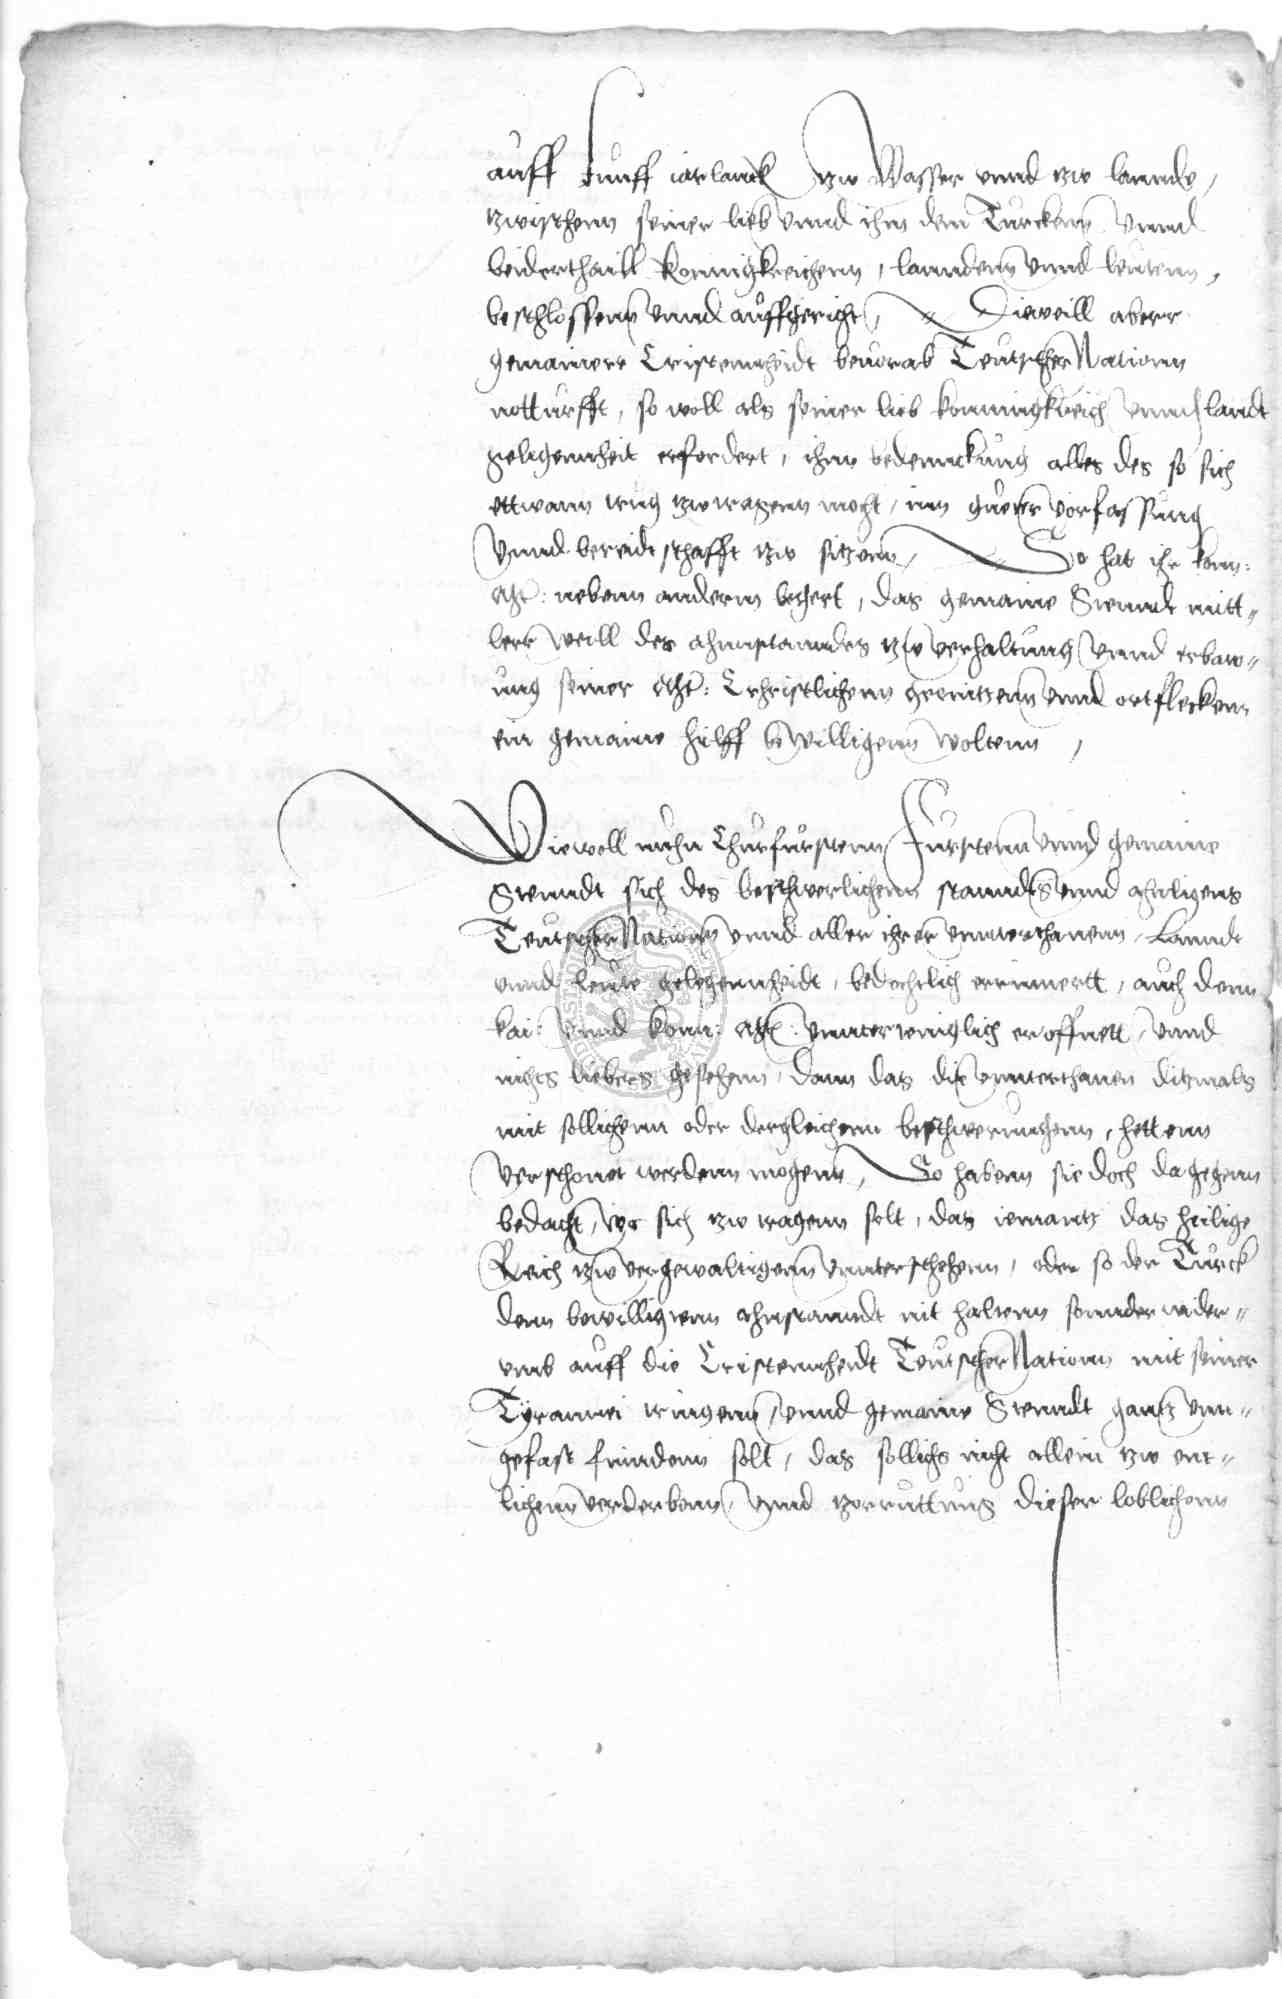 auff funff iar lanck zw Wasser vnnd zw lannde,
zwischenn seiner lieb vnnd ihm dem Turckenn vnnd
beiderthaill konnigkreichenn, lanndenn vnnd leutenn,
beschlossenn vnnd auffgericht, Dieweill aberr
gemainerr Cristennheidt beuorab Teutscher Nationn
notturfft, so woll als seiner lieb konningkreich vnnd landt
gelegennheit erfordert, ihnn bedennckung alles des so sich
ettwann zwtragenn mocht, inn guter vorfassung
vnnd bereidtschafft zw sitzenn, So hat ihr konn:
Mt: nebenn anderm begert, das gemaine Stenndt mitt=
lerr weill des ahnstanndes zw verhaltung vnnd erbaw=
ung seiner Mt: Christlichenn grenitzenn vnnd ortfleckenn
ein gemaine hilff bewilligenn woltenn,
Wiewoll nuhn Churfurstenn Furstenn vnnd gemaine
Stenndt sich des beschwerlichenn stanndes vnnd ahnligens
Teutscher Nationn vnnd aller ihrer vnnterthanenn, Lanndt
vnnd leute gelegennheidt, bedechtlich erinnertt, auch denn
kai: vnnd konn: Mt: vnnterteniglich eroffnett, vnnd
nichts liebers gesehenn, dann das die vnnterthanen ditzmals
mit sollichenn oder dergleichenn beschwerungenn, hettenn
verschonet werdenn mogenn, So habenn sie doch dagegenn
bedacht, wo sich zw tragenn solt, das iemantz das heilige
Reich zw vergewaltigenn vnnterstehenn, oder so der Turck
denn bewilligtenn ahnstanndt nit haltenn sonnder wider=
umb auff die Cristennheidt Teutscher Nationn mit seiner
Tyrannei tringenn, vnnd gemaine Stenndt gantz vnn=
gefast finndenn solt, das sollichs nicht allein zw ent=
lichenn verderbenn, vnnd zerruttung dieser loblichenn